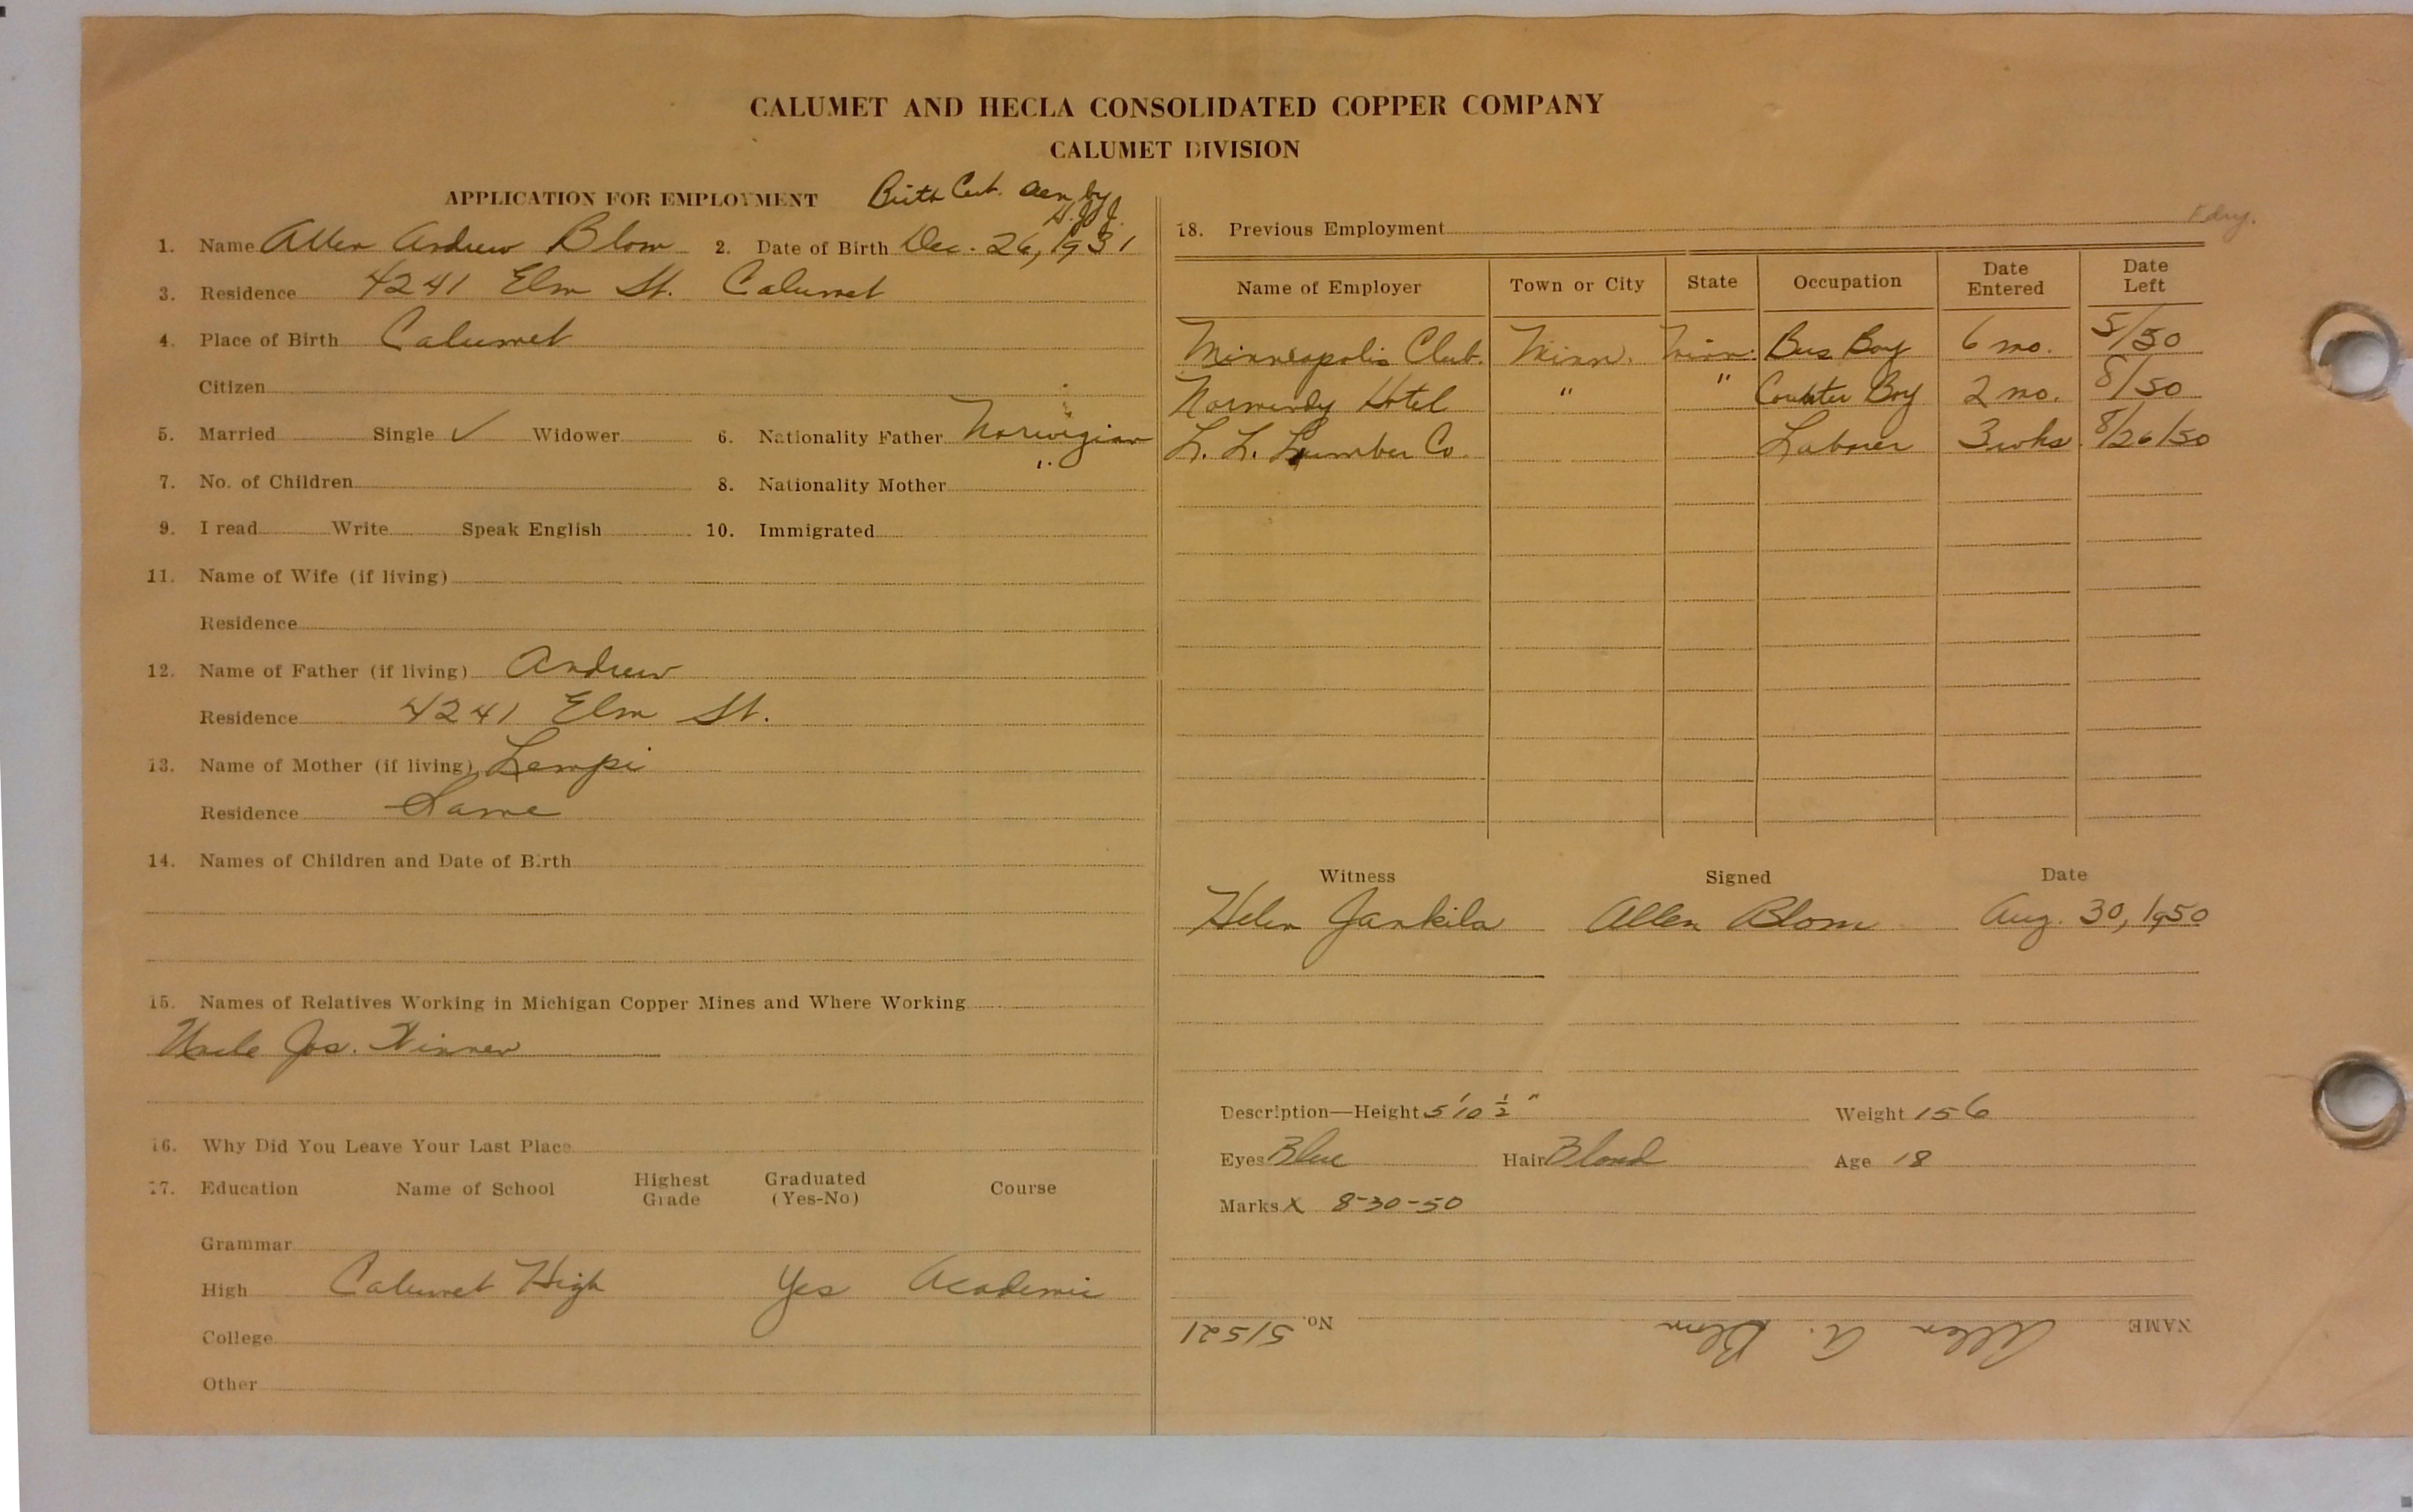 CALUMET AND HECLA CONSOLIDATED COPPER COMPANY
CALUMET DIVISION
APPLICATION FOR EMPLOYMENT Birth Cert. seen by
1. Name Allen Andrew Blom 2. Date of Birth Dec. 26, 1931
3. Residence 4241 Elm St. Calumet
4. Place of Birth Calumet
Citizen
5. Married Single ✓ Widower 6. Nationality Father Norwegian
7. No. of Children 8. Nationality Mother "
9. I read Write Speak English 10. Immigrated
11. Name of Wife (if living)
Residence
12. Name of Father (if living) Andrew
Residence 4241 Elm St.
13. Name of Mother (if living) Lempi
Residence Same
14. Names of Children and Date of Birth
15. Names of Relatives Working in Michigan Copper Mines and Where Working
Uncle Jos.
16. Why Did You Leave Your Last Place
17. Education Name of School Highest Grade Graduated (Yes-No) Course
Grammar
High Calumet High Yes Academic
College
Other
18. Previous Employment Fdry.
Name of Employer Town or City State Occupation Date Entered Date Left
Minneapolis Club. Minn. Minn. Bus Boy 6 mo. 5/50
Normandy Hotel " " Counter Boy 2 mo. 8/50
L. L. Lumber Co. Laborer 3 wks. 8/26/50
Witness Signed Date
Helen Jankila Allen Blom Aug. 30, 1950
Description—Height 5'10 1/2" Weight 156
Eyes Blue Hair Blond Age 18
Marks X 8-30-50
NAME Allen A. Blom No. 51521